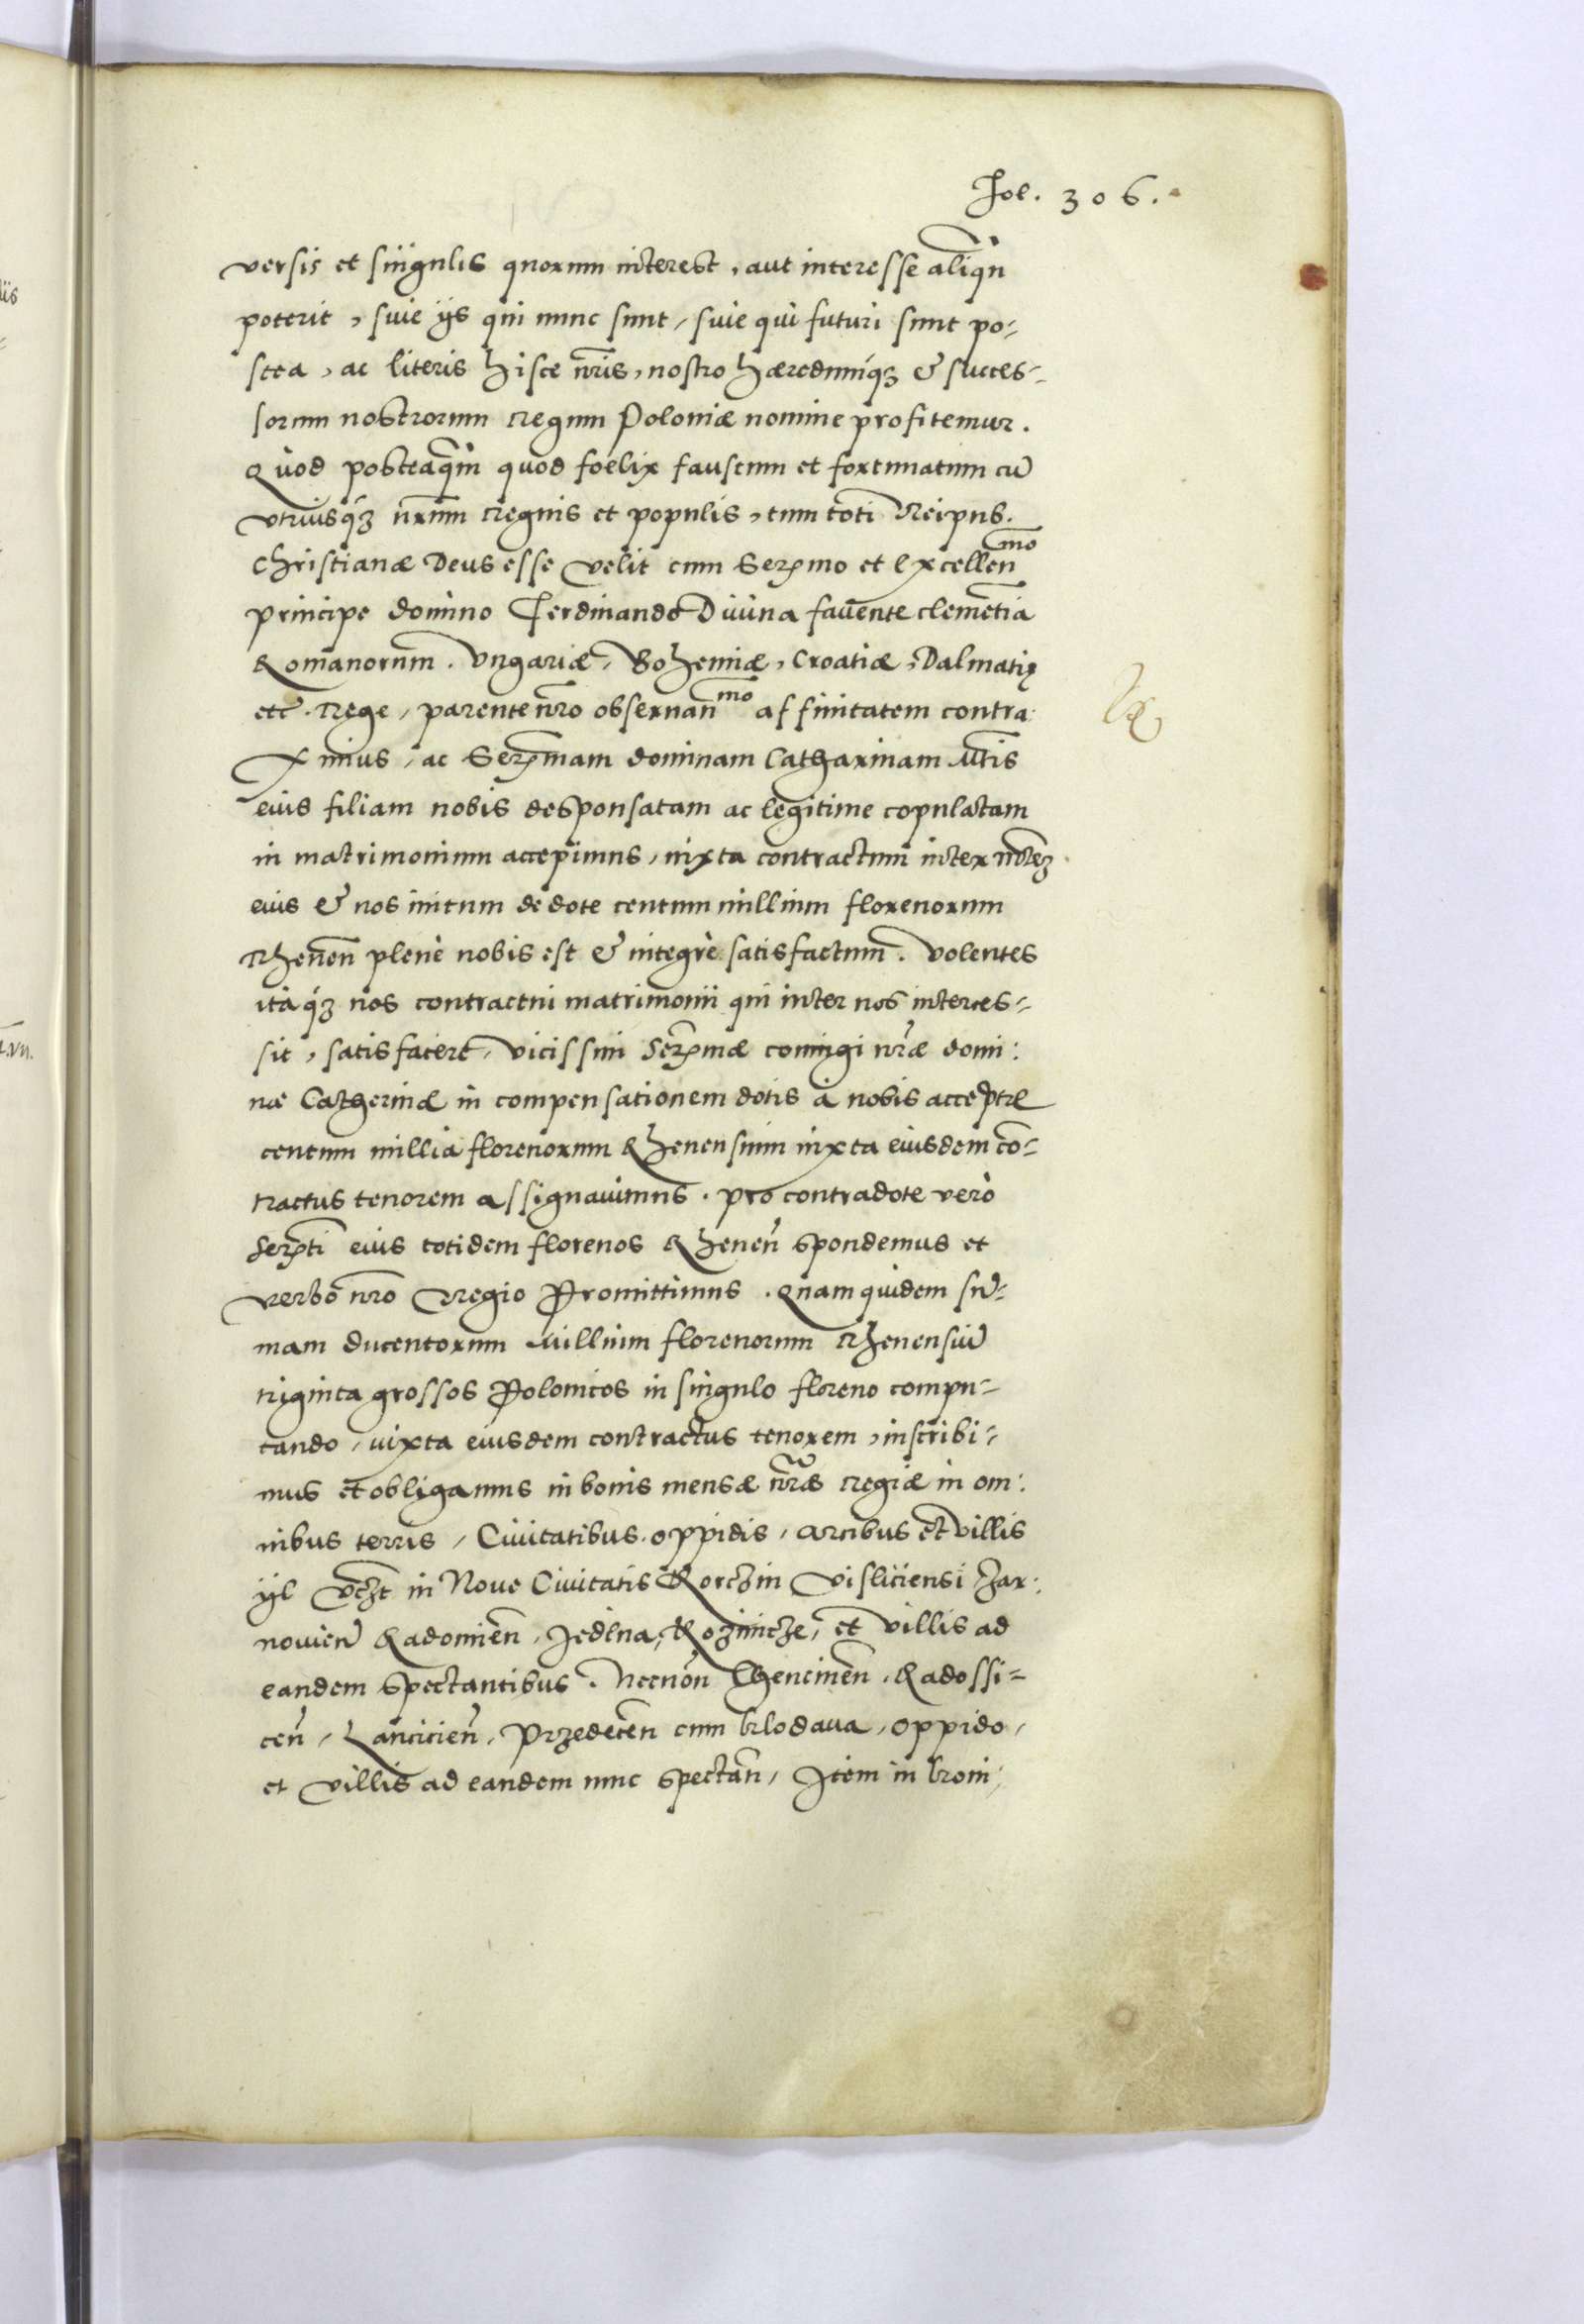 Fol. 306.
versis et singulis quorum interest, aut interesse aliqñ
poterit, siue ijs qui nunc sunt, siue qui futuri sunt po-
stea, ac literis hisce nr̃is, nostro hæredumq́ʒ & succes-
sorum nostrorum regum Poloniæ nomine profitemur.
Quod posteaq̃m quod foelix faustum et fortunatum cũ
vtriusq́ʒ nr̃um regnis et populis, tum toti Reipub.
Christianæ Deus esse velit cum Serͫmo et Excellenᵐᵒ
principe domino Ferdinando Diuina fauente clemẽtia
Romanorum. Vngariæ, Bohemiæ, Croatiæ, Dalmatię
etc̃. Rege, parente nr̃o obseruanᵐᵒ affinitatem contra:
ximus, ac Serᵐmam dominam Catharinam Mtis
eius filiam nobis desponsatam ac legitime copulatam
in matrimonium accepimus, iuxta contractum inter Mtẽʒ
eius & nos initum de dote centum millium florenorum
Rhenen̄ plene nobis est & integrè satisfactum. Volentes
itaq́ʒ nos contractui matrimonii qui inter nos interces-
sit, satisfacere, vicissim Serᵐmæ coniugi nr̃æ domi:
næ Catherinæ in compensationem dotis à nobis acceptæ
centum millia florenorum Rhenensium iuxta eiusdem cõ-
tractus tenorem assignauimus. pro contradote verò
Serͫti eius totidem florenos Rhenen̄ spondemus et
verbo nr̃o Regio Promittimus. Quam quidem sũ-
mam ducentorum Millium florenorum Rhenensiũ
triginta grossos Polonicos in singulo floreno compu-
tando, iuxta eiusdem contractus tenorem, inscribi-
mus et obligamus in bonis mensæ nr̃æ regiæ in om:
nibus terris, Ciuitatibus. oppidis, arcibus et villis
in Noue Ciuitatis Korczin Visliciensi Zar:
nouien̄ Radomien̄, Jedlna, Kozinicze, et villis ad
eandem spectantibus. Necnon Chencinen̄. Radossi-
cen̄, Lancicien̄, Przedecen̄ cum Klodaua, oppido,
et villis ad eandem nunc spectan̄, Item in broni,